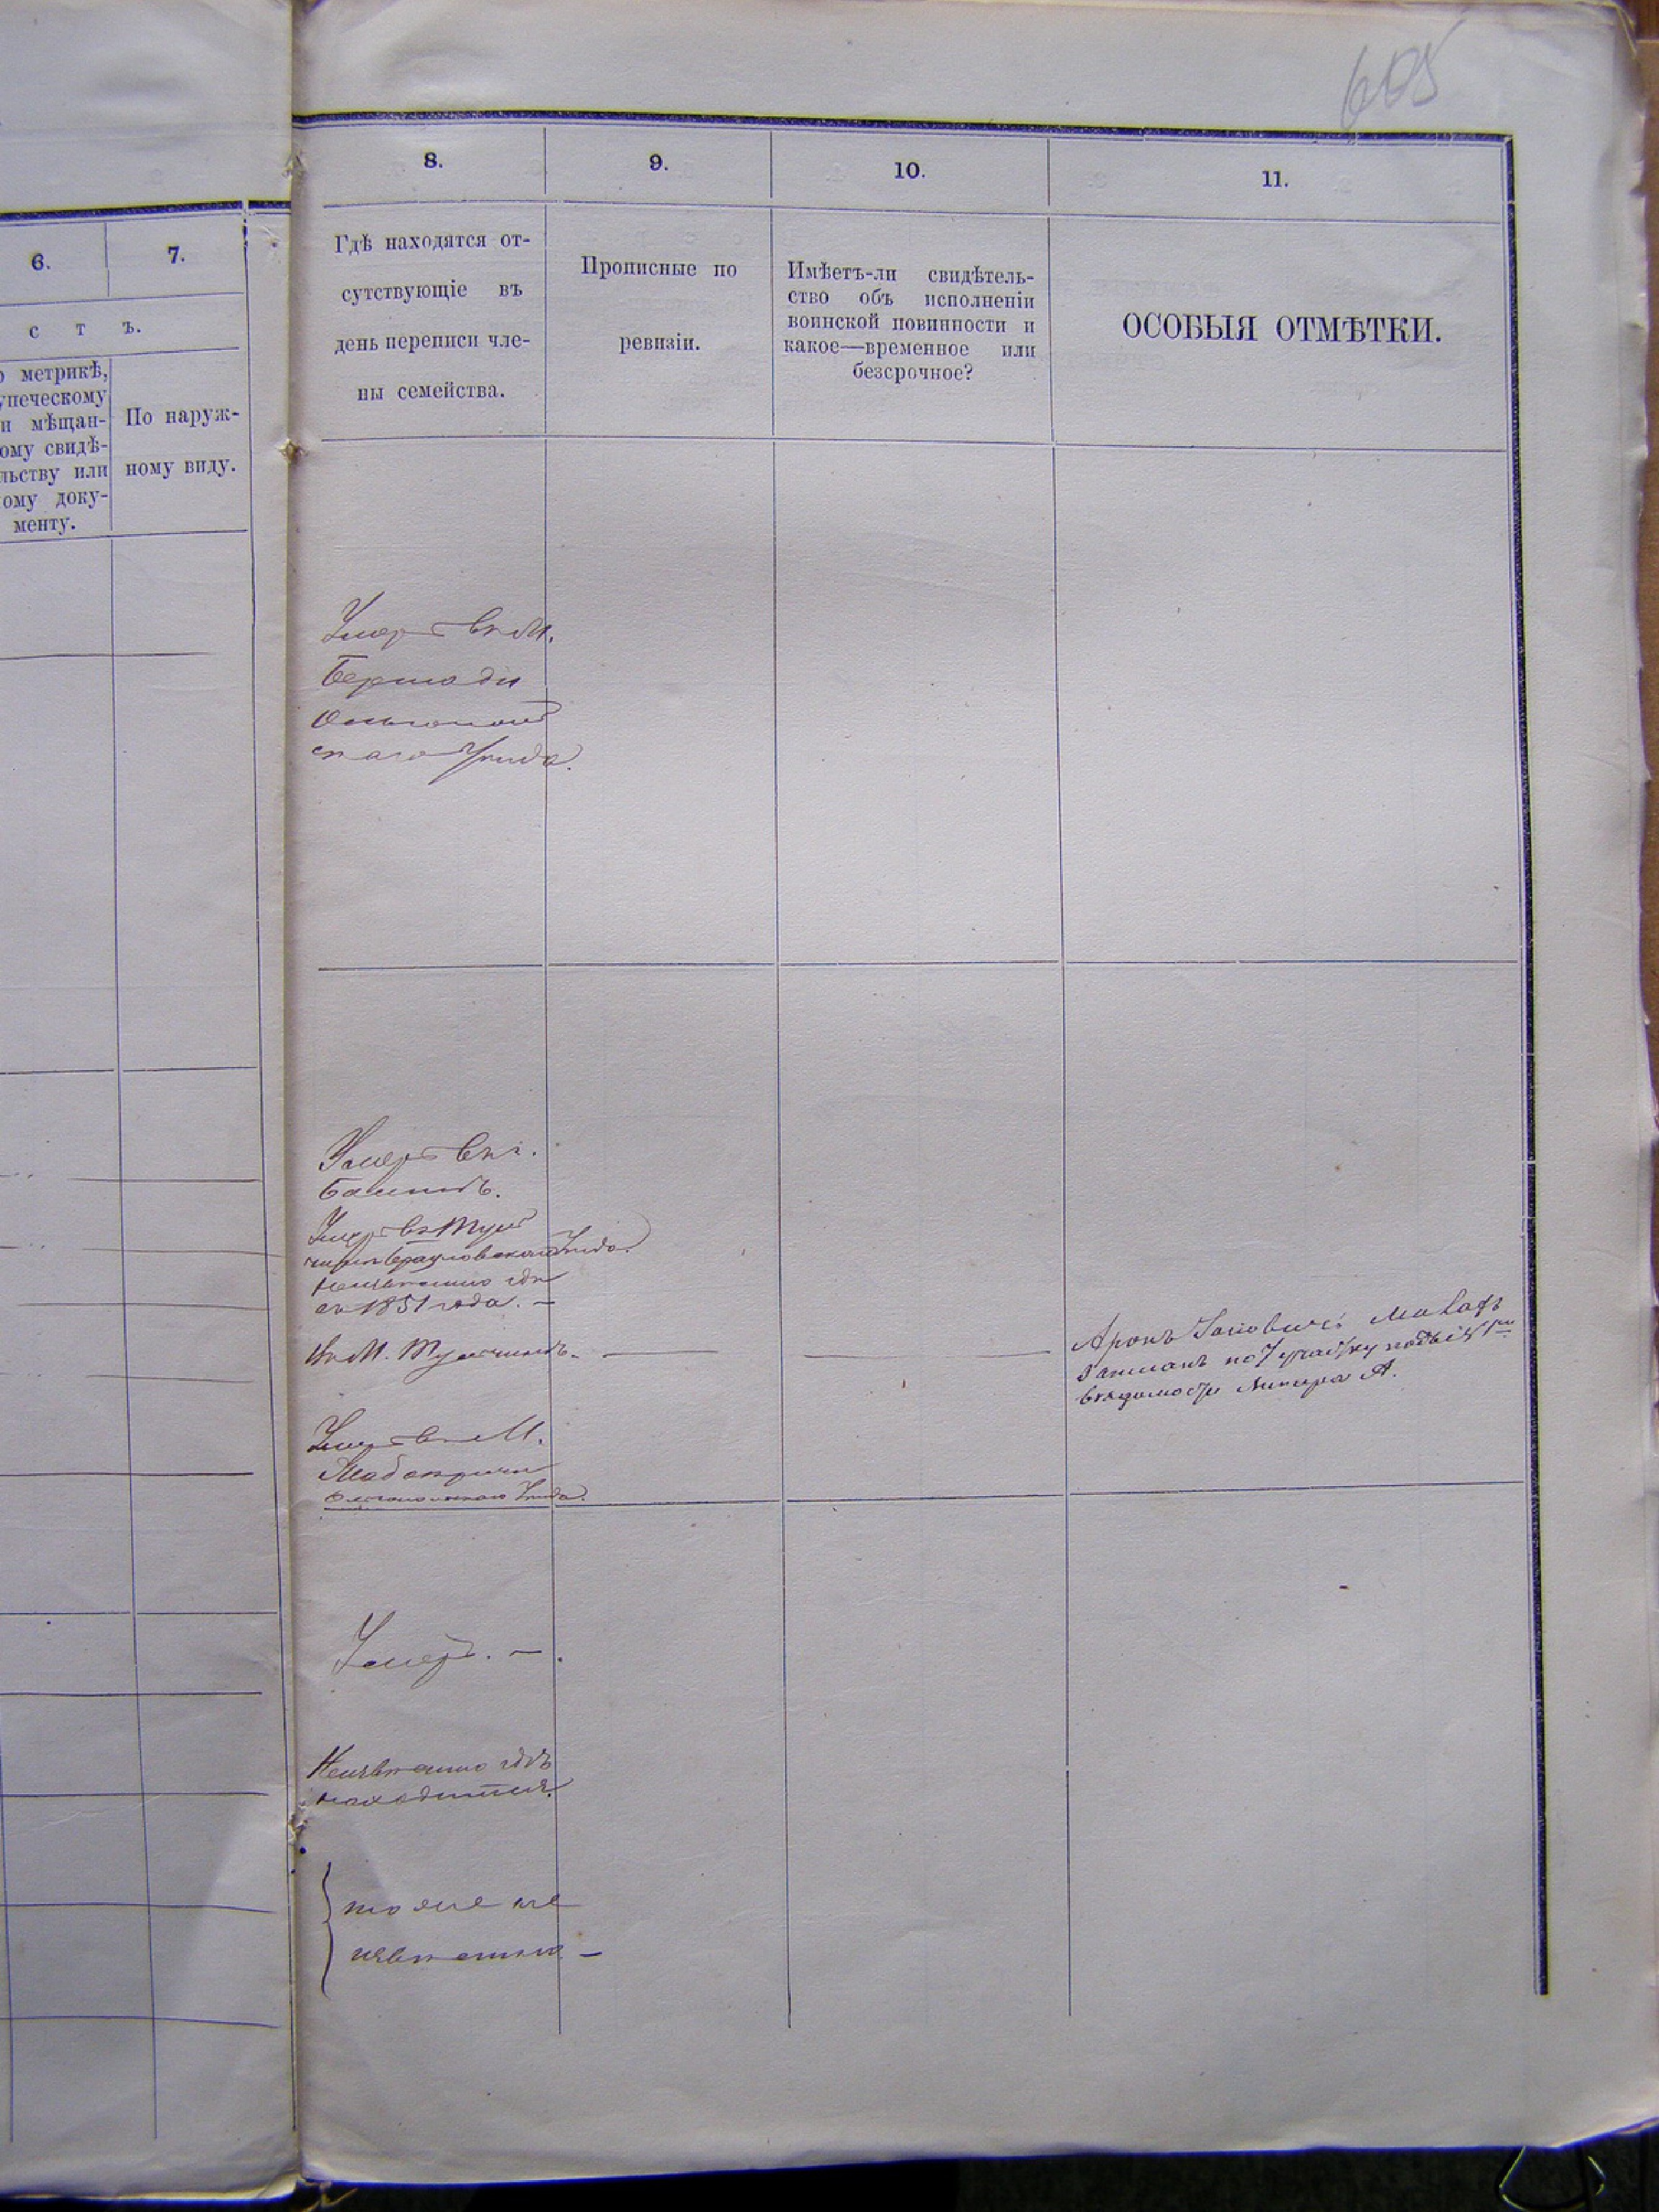 605
6.
7.
с т ъ.
о метрикѣ,
упеческому
и мѣщан-
ому свидѣ-
льству или
ому доку-
менту.
По наруж-
ному виду.
8.
9.
10.
11.
Гдѣ находятся от-
сутствующіе въ
день переписи чле-
ны семейства.
Прописные по
ревизіи.
Имѣетъ-ли свидѣтель-
ство объ исполненіи
воинской повинности и
какое—временное или
безсрочное?
ОСОБЫЯ ОТМѢТКИ.
Умеръ въ М.
Бершади
Ольгополь
скаго Уѣзда.
Умеръ въ г.
Умеръ въ Туль
чинѣ Брацловскаго Уѣзда.
Неизвѣстно гдѣ
съ 1851 года. —
Въ М. Тульчинѣ. —
Аронъ
Записанъ по 7 участку подъ
Умеръ въ М.
Ольгопольскаго Уѣзда.
Умеръ. —.
Неизвѣстно гдѣ
находится.
тоже не
извѣстно —